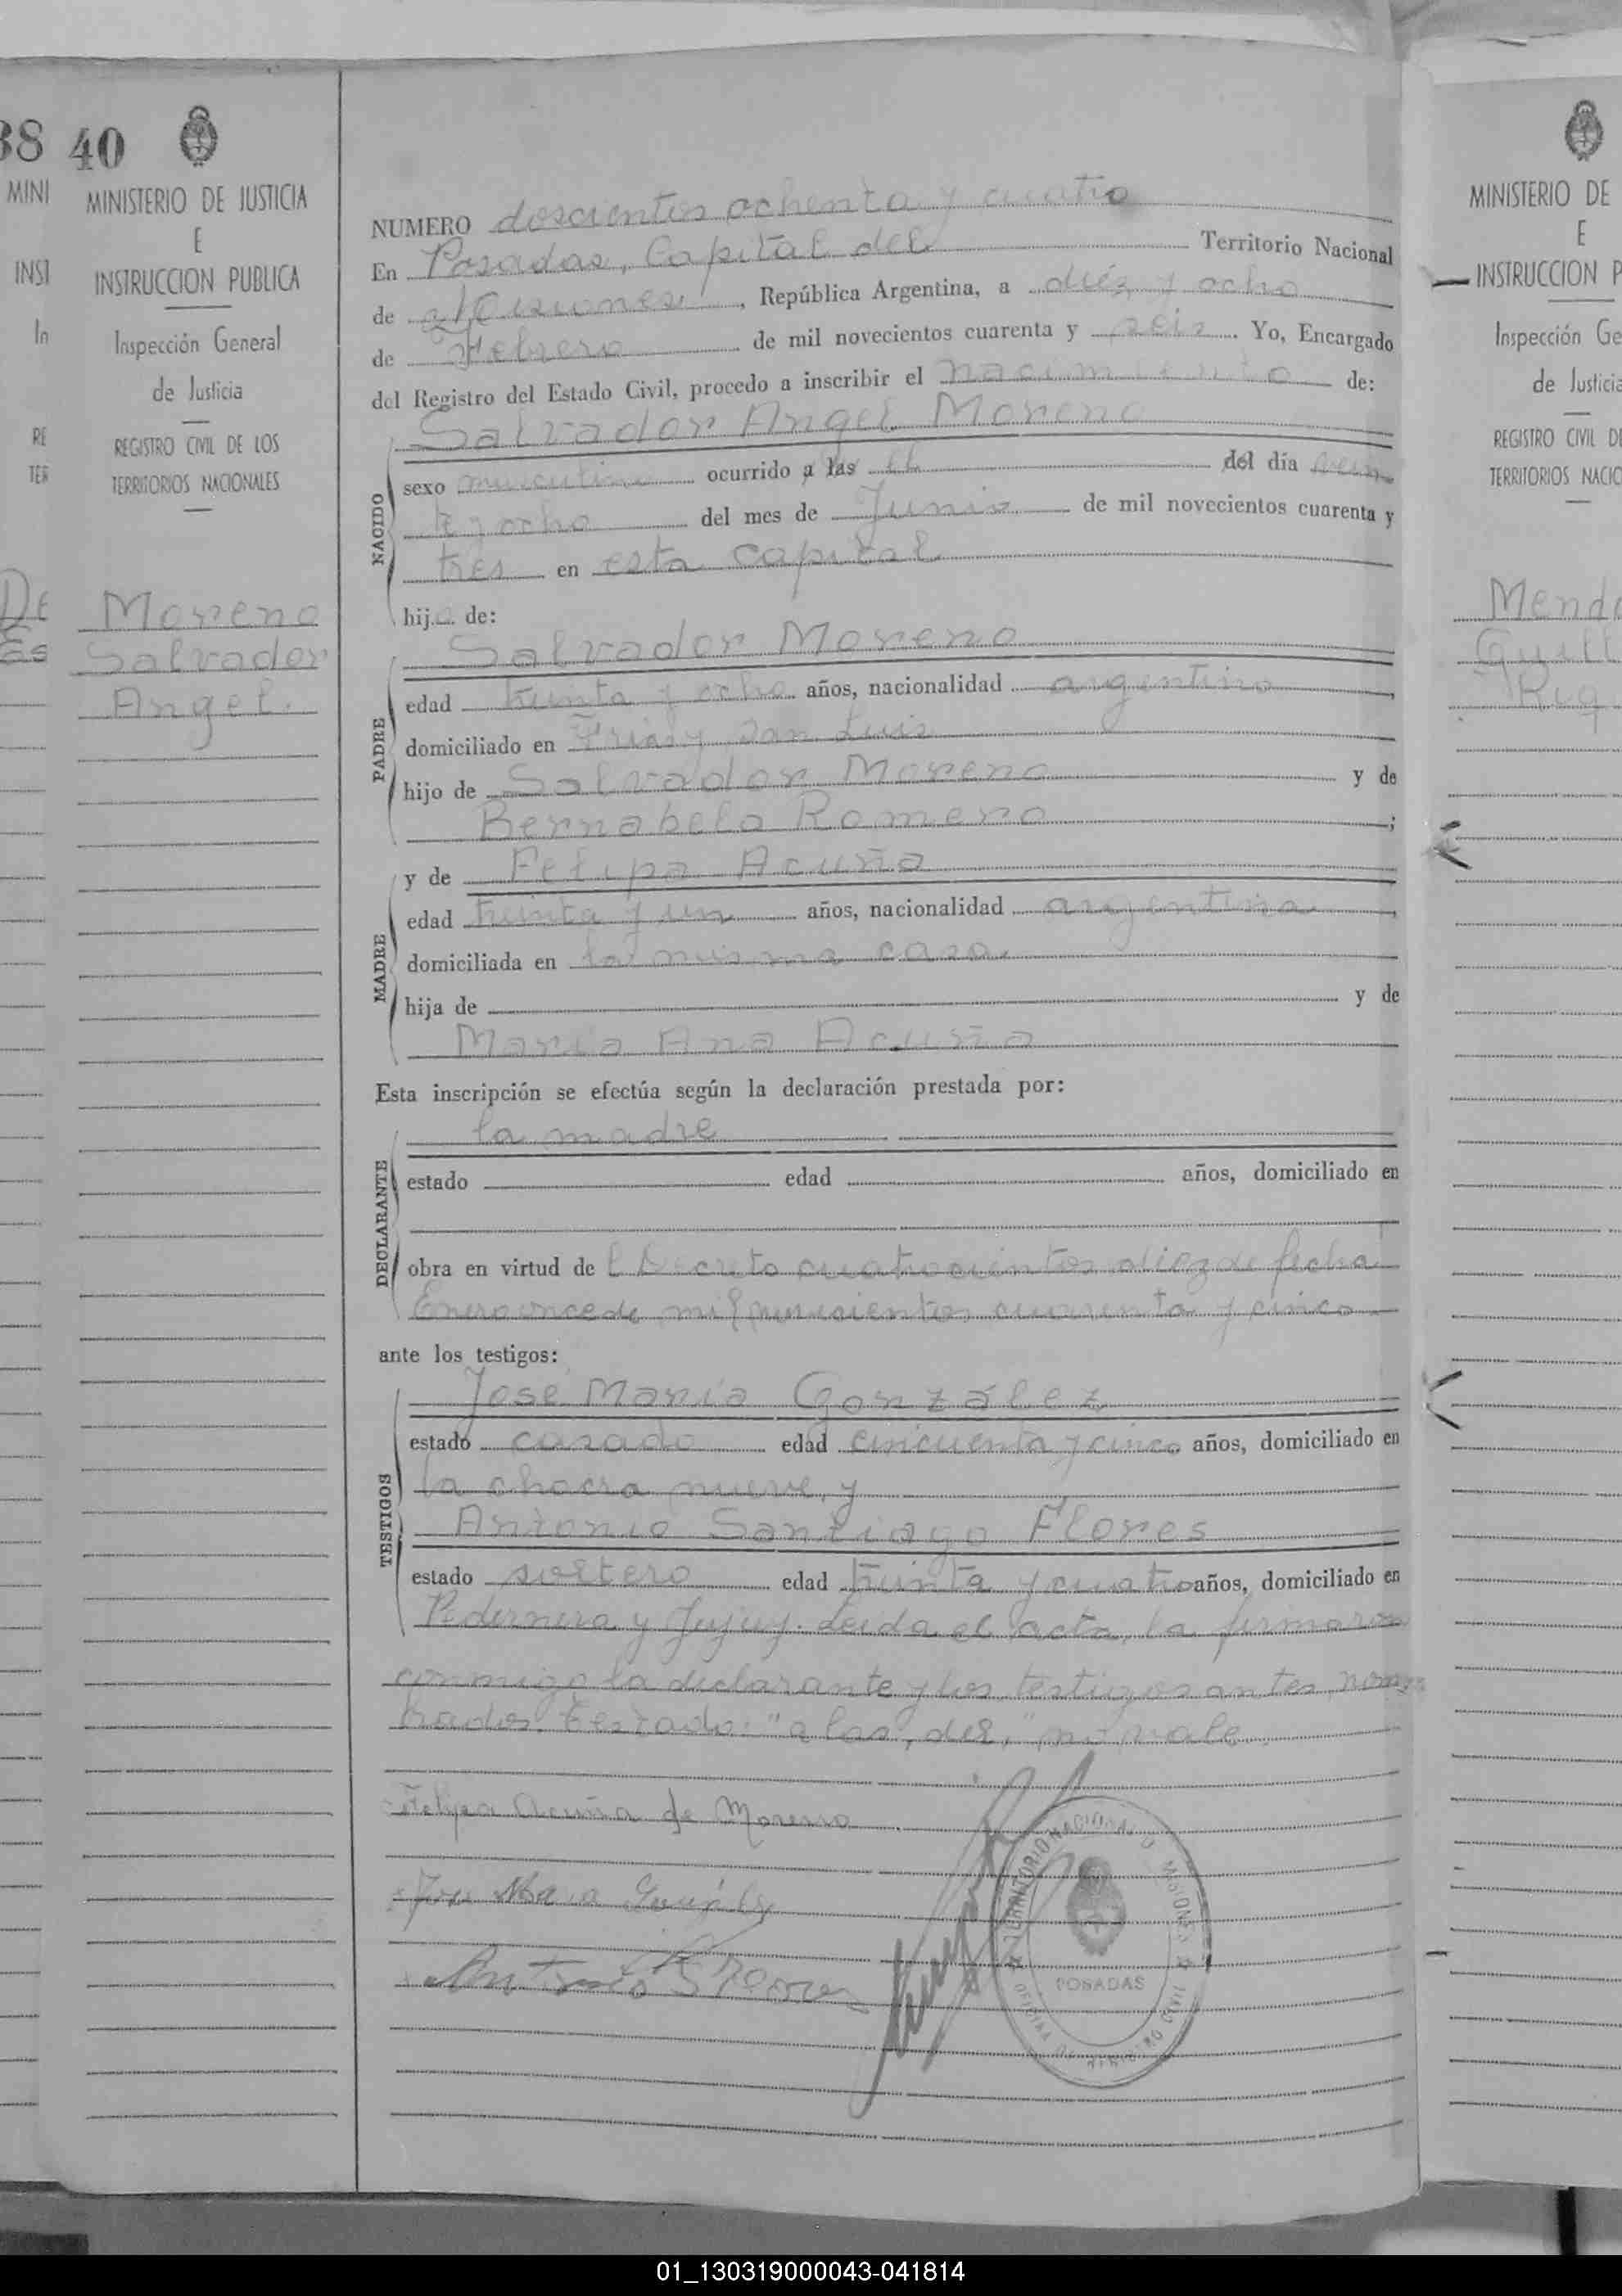 38
MINI
INST
In
RE
TER
De
Es
40
MINISTERIO DE JUSTICIA
E
INSTRUCCION PUBLICA
Inspección General
de Justicia
REGISTRO CIVIL DE LOS
TERRITORIOS NACIONALES
Moreno
Salvador
Angel.
NUMERO doscientos ochenta y cuatro
En Posadas, Capital del Territorio Nacional
de Misiones, República Argentina, a diéz y ocho
de Febrero de mil novecientos cuarenta y seis. Yo, Encargado
del Registro del Estado Civil, procedo a inscribir el nacimiento de:
NACIDO
Salvador Angel Moreno
sexo masculino ocurrido a las el del día vein
te y ocho del mes de Junio de mil novecientos cuarenta y
tres en esta capital
hijo de:
PADRE
Salvador Moreno
edad treinta y ocho años, nacionalidad argentino
domiciliado en Frias y San Luis
hijo de Salvador Moreno y de
Bernabela Romero ;
MADRE
y de Felipa Acuña
edad treinta y un años, nacionalidad argentina
domiciliada en la misma casa
hija de y de
Maria Ana Acuña
Esta inscripción se efectúa según la declaración prestada por:
DECLARANTE
la madre
estado edad años, domiciliado en
obra en virtud del Decreto cuatrocientos diez de fecha
Enero once de mil novecientos cuarenta y cinco
ante los testigos:
TESTIGOS
José María González
estado casado edad cincuenta y cinco años, domiciliado en
la chacra nueve, y
Antonio Santiago Flores
estado soltero edad treinta y cuatro años, domiciliado en
Pedernera y Jujuy. Leida el acta, la firmaron
conmigo la declarante y los testigos antes nom
brados. Testado: "a las, del," no vale.
Felipa Acuña de Moreno
Jose Maria González
Antonio S Flores
TERRITORIO NACIONAL D MISIONES
POSADAS
MINISTERIO DE
E
INSTRUCCION P
Inspección Ge
de Justicia
REGISTRO CIVIL DE
TERRITORIOS NACIO
Mend
Guill
01_130319000043-041814